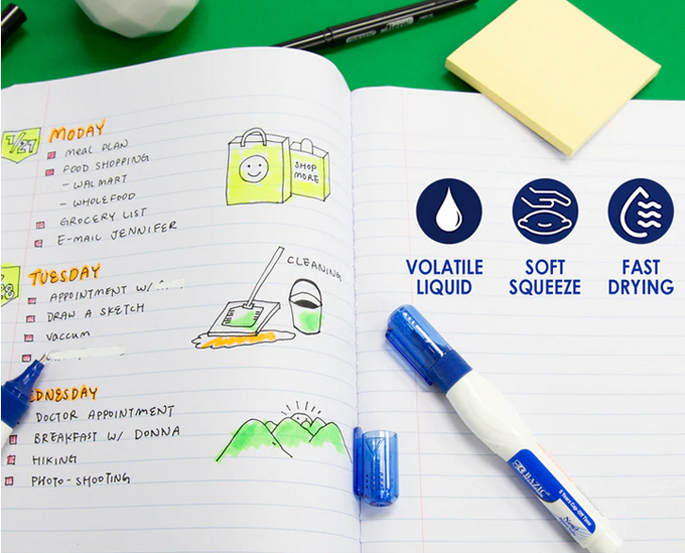 7/27
MODAY
MEAL PLAN
FOOD SHOPPING
- WALMART
- WHOLEFOOD
GROCERY LIST
E-MAIL JENNIFER
SHOP
MORE
TUESDAY
APPOINTMENT W/
DRAW A SKETCH
VACCUM
CLEANING
DOCTOR APPOINTMENT
BREAKFAST W/ DONNA
HIKING
PHOTO-SHOOTING
VOLATILE
LIQUID
SOFT
SQUEEZE
FAST
DRYING
BAZIC